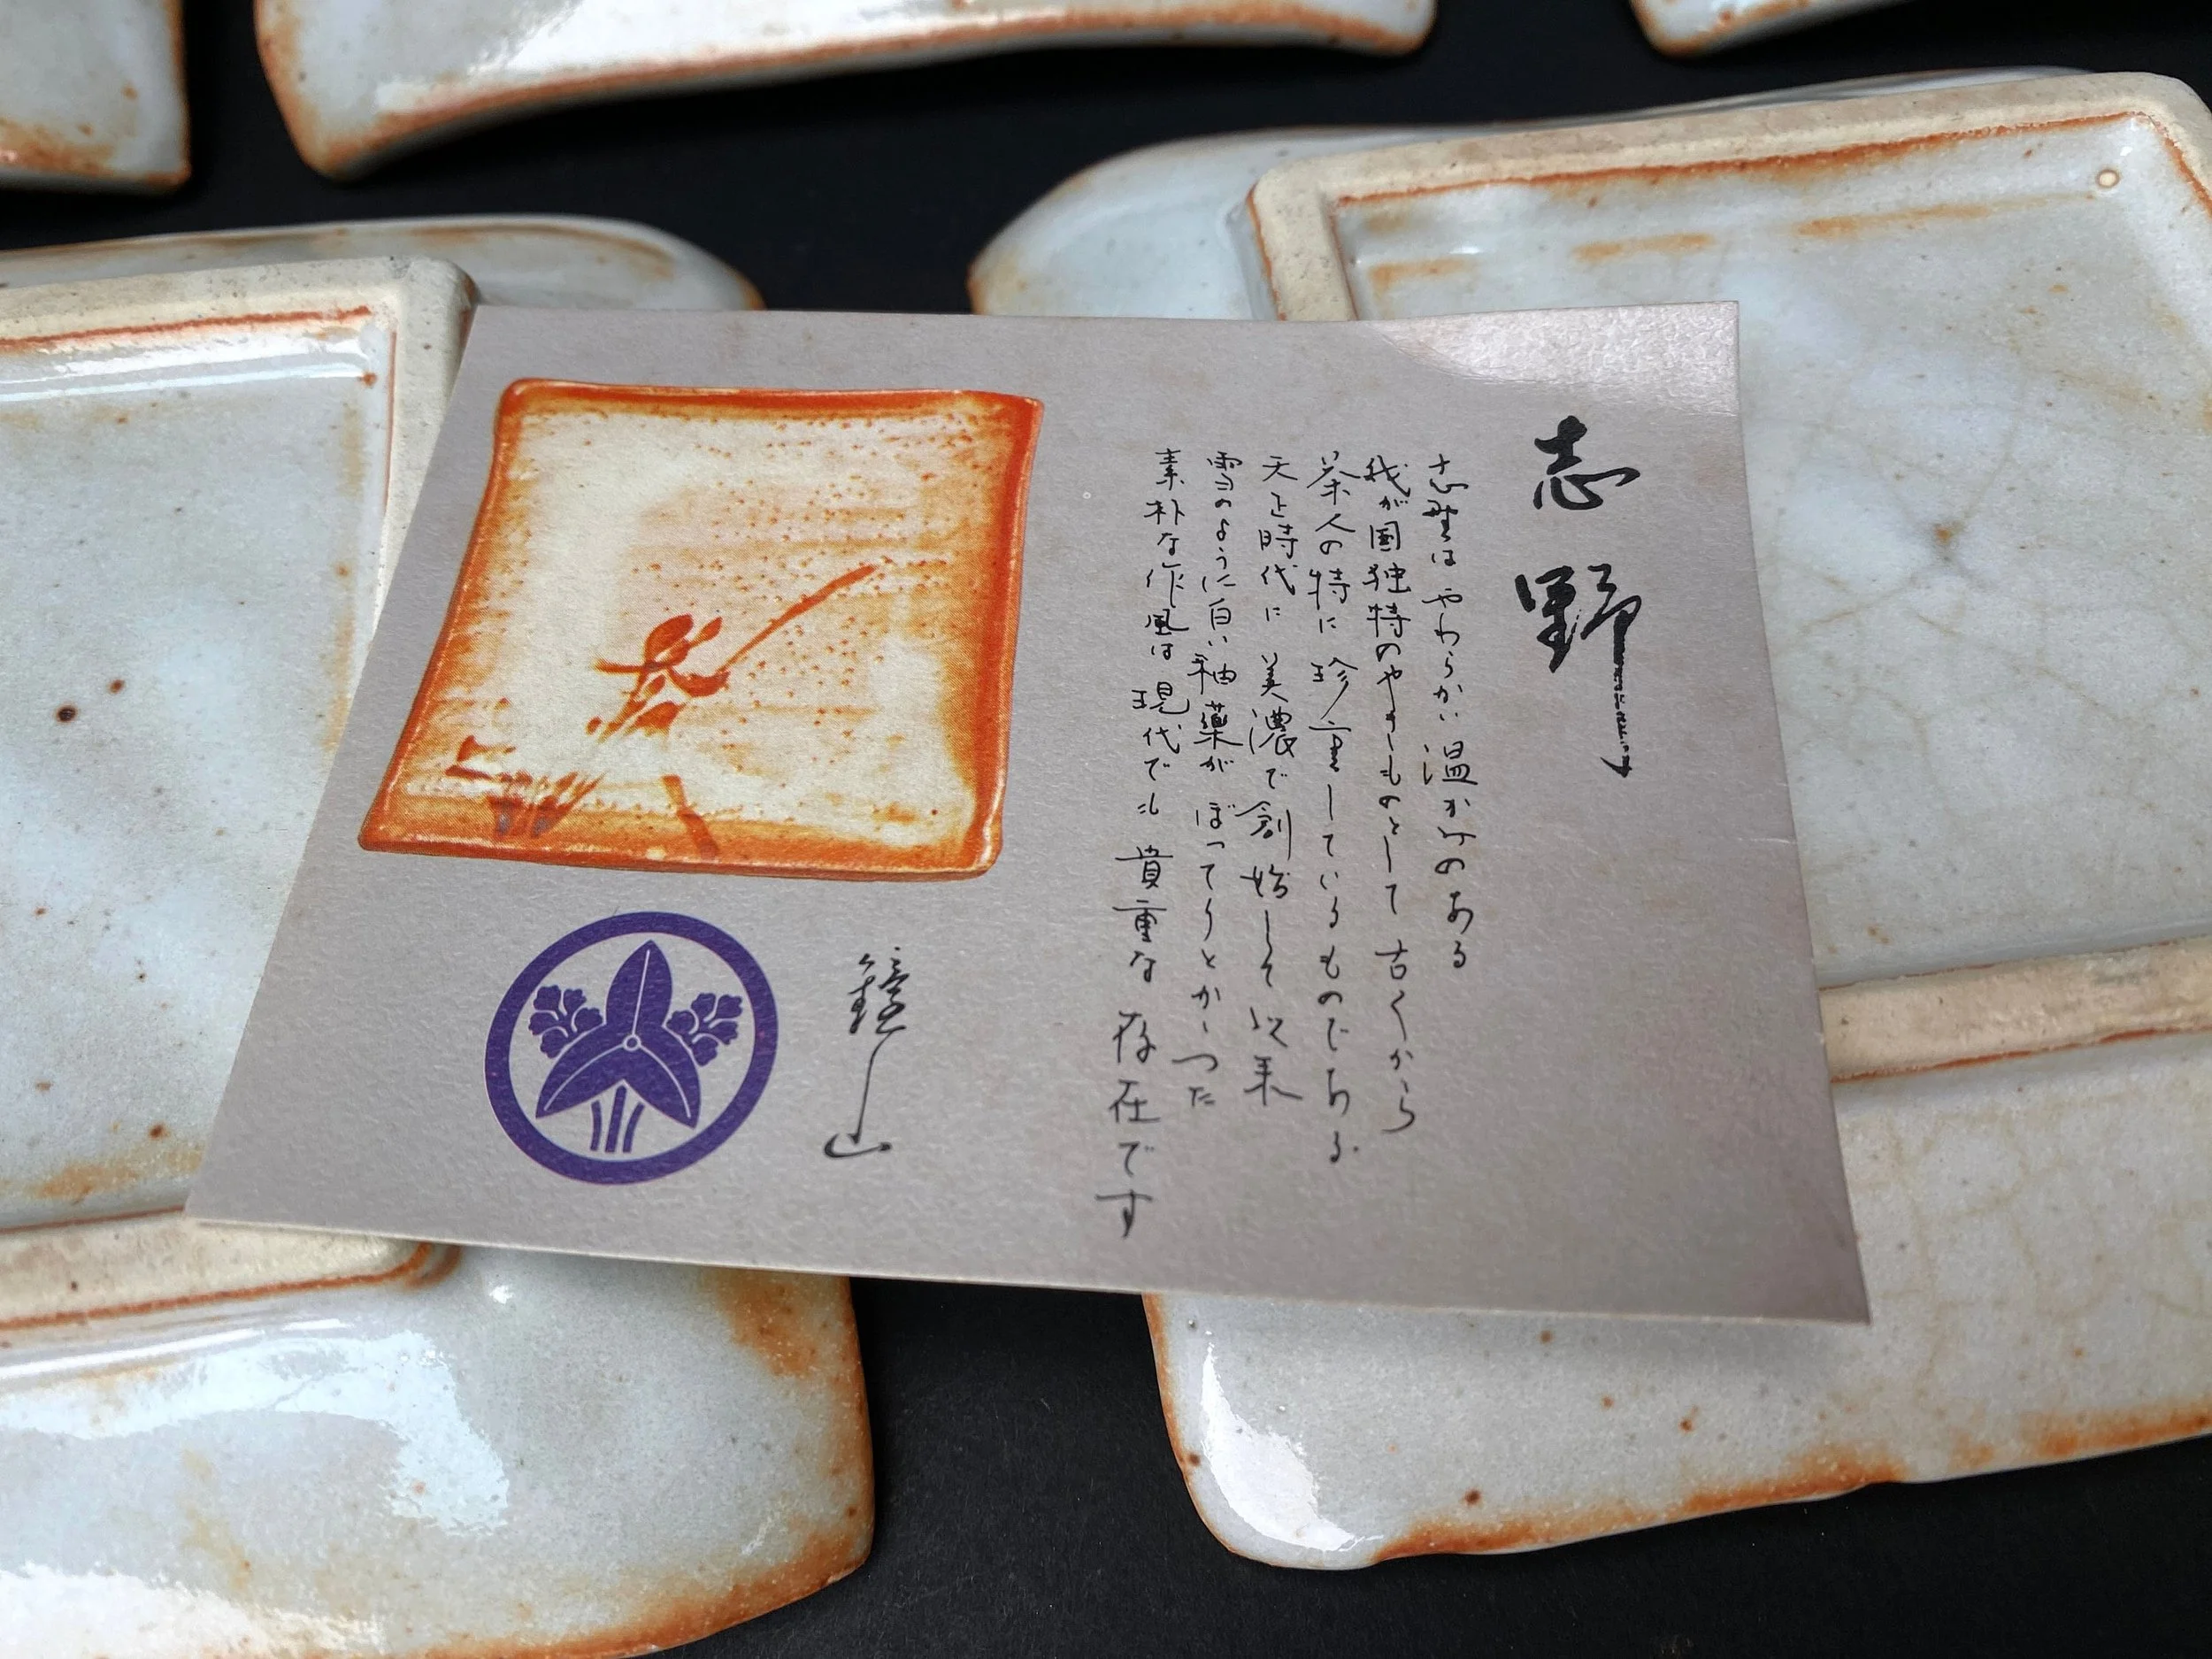 志野
志野はやわらかい温かみのある
我が国独特のやきものとして古くから
茶人の特に珍重しているものである
天正時代に美濃で創始して以来
雪のように白い釉薬がぼってりとかゝった
素朴な作風は現代でも貴重な存在です
鏡山